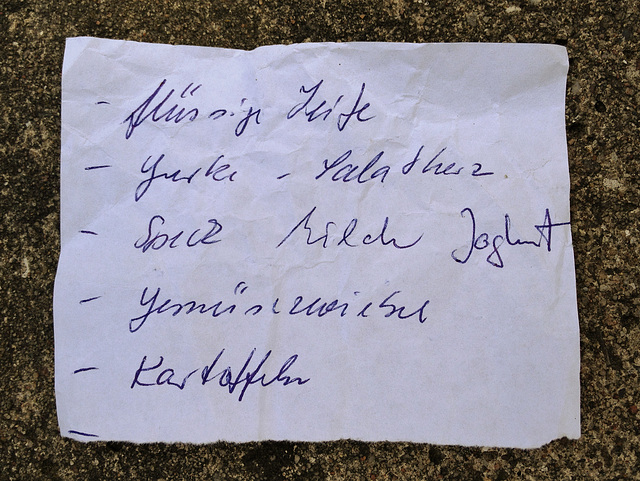 - flüssige Seife
- Gurke - Salatherz
- Speck Milch Joghurt
- Gemüsezwiebel
- Kartoffeln
-